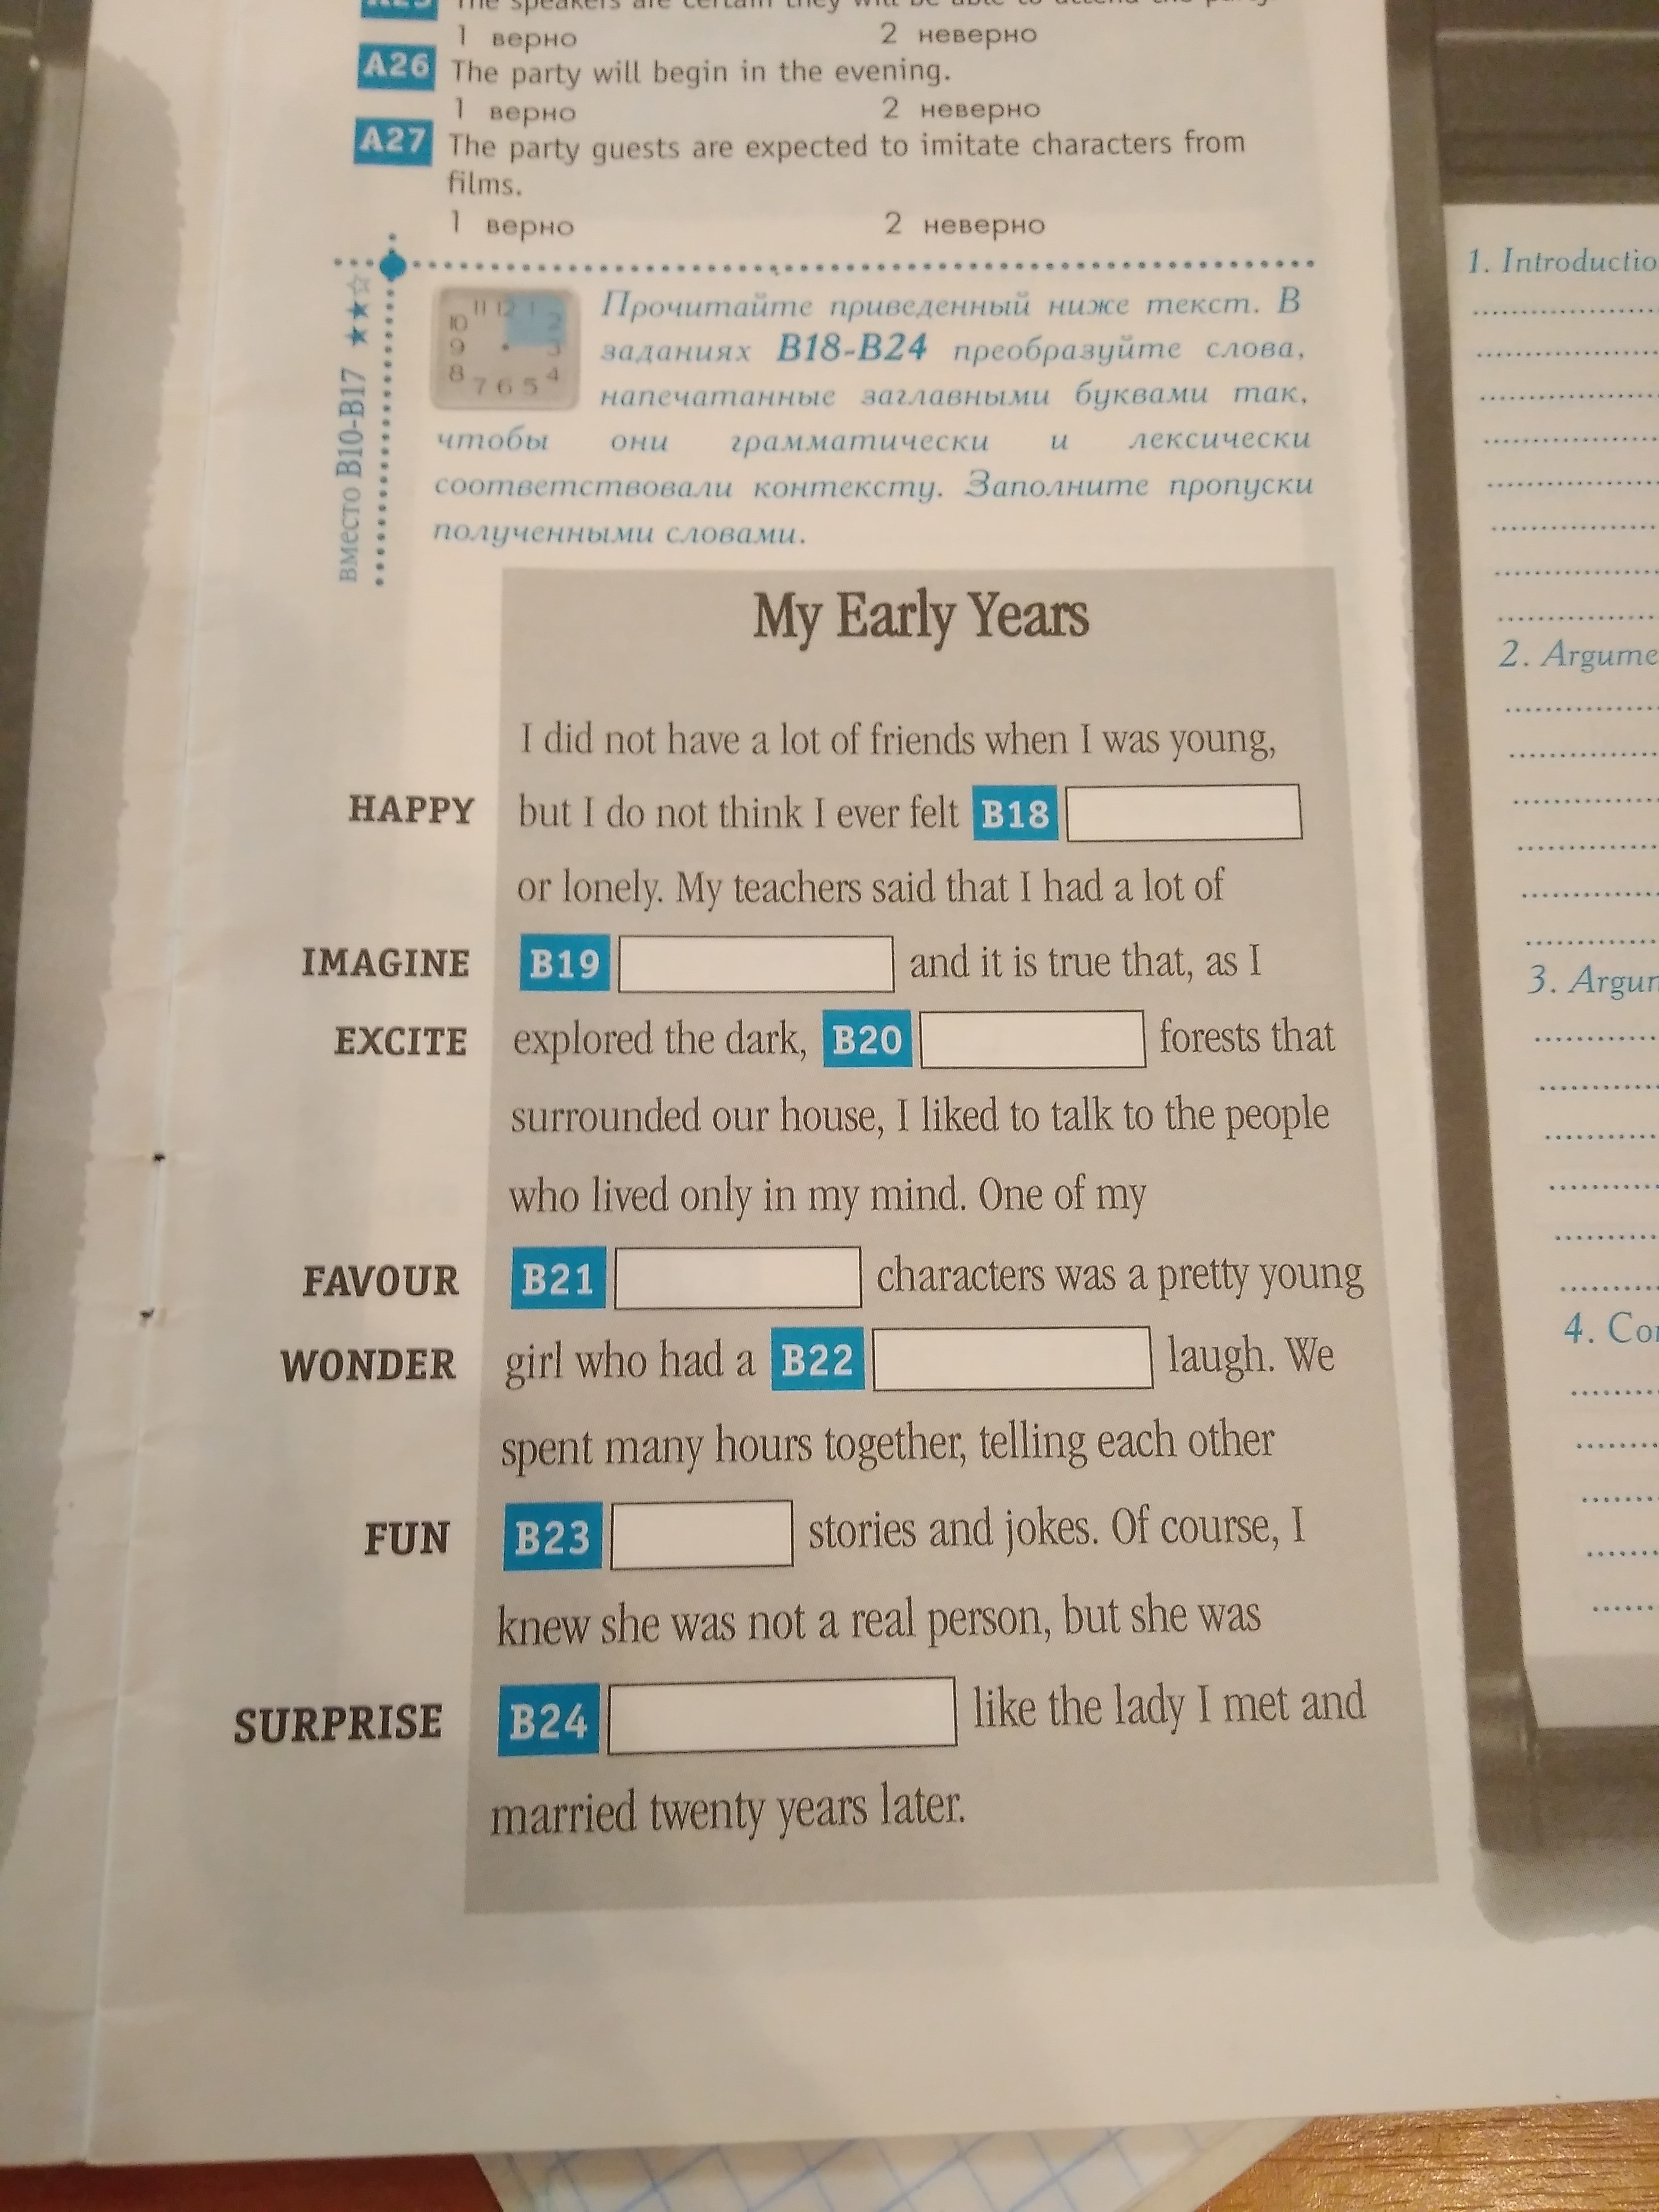 A25 The speakers are certain they will be able to attend the party.
1 верно 2 неверно
A26 The party will begin in the evening.
1 верно 2 неверно
A27 The party guests are expected to imitate characters from
films.
1 верно 2 неверно
вместо B10-B17 ★★☆
11 12 1
10 2
9 3
8 4
7 6 5
Прочитайте приведенный ниже текст. В
заданиях B18-B24 преобразуйте слова,
напечатанные заглавными буквами так,
чтобы они грамматически и лексически
соответствовали контексту. Заполните пропуски
полученными словами.
My Early Years
I did not have a lot of friends when I was young,
HAPPY but I do not think I ever felt B18
or lonely. My teachers said that I had a lot of
IMAGINE B19 and it is true that, as I
EXCITE explored the dark, B20 forests that
surrounded our house, I liked to talk to the people
who lived only in my mind. One of my
FAVOUR B21 characters was a pretty young
WONDER girl who had a B22 laugh. We
spent many hours together, telling each other
FUN B23 stories and jokes. Of course, I
knew she was not a real person, but she was
SURPRISE B24 like the lady I met and
married twenty years later.
1. Introductio
2. Argume
3. Argum
4. Co